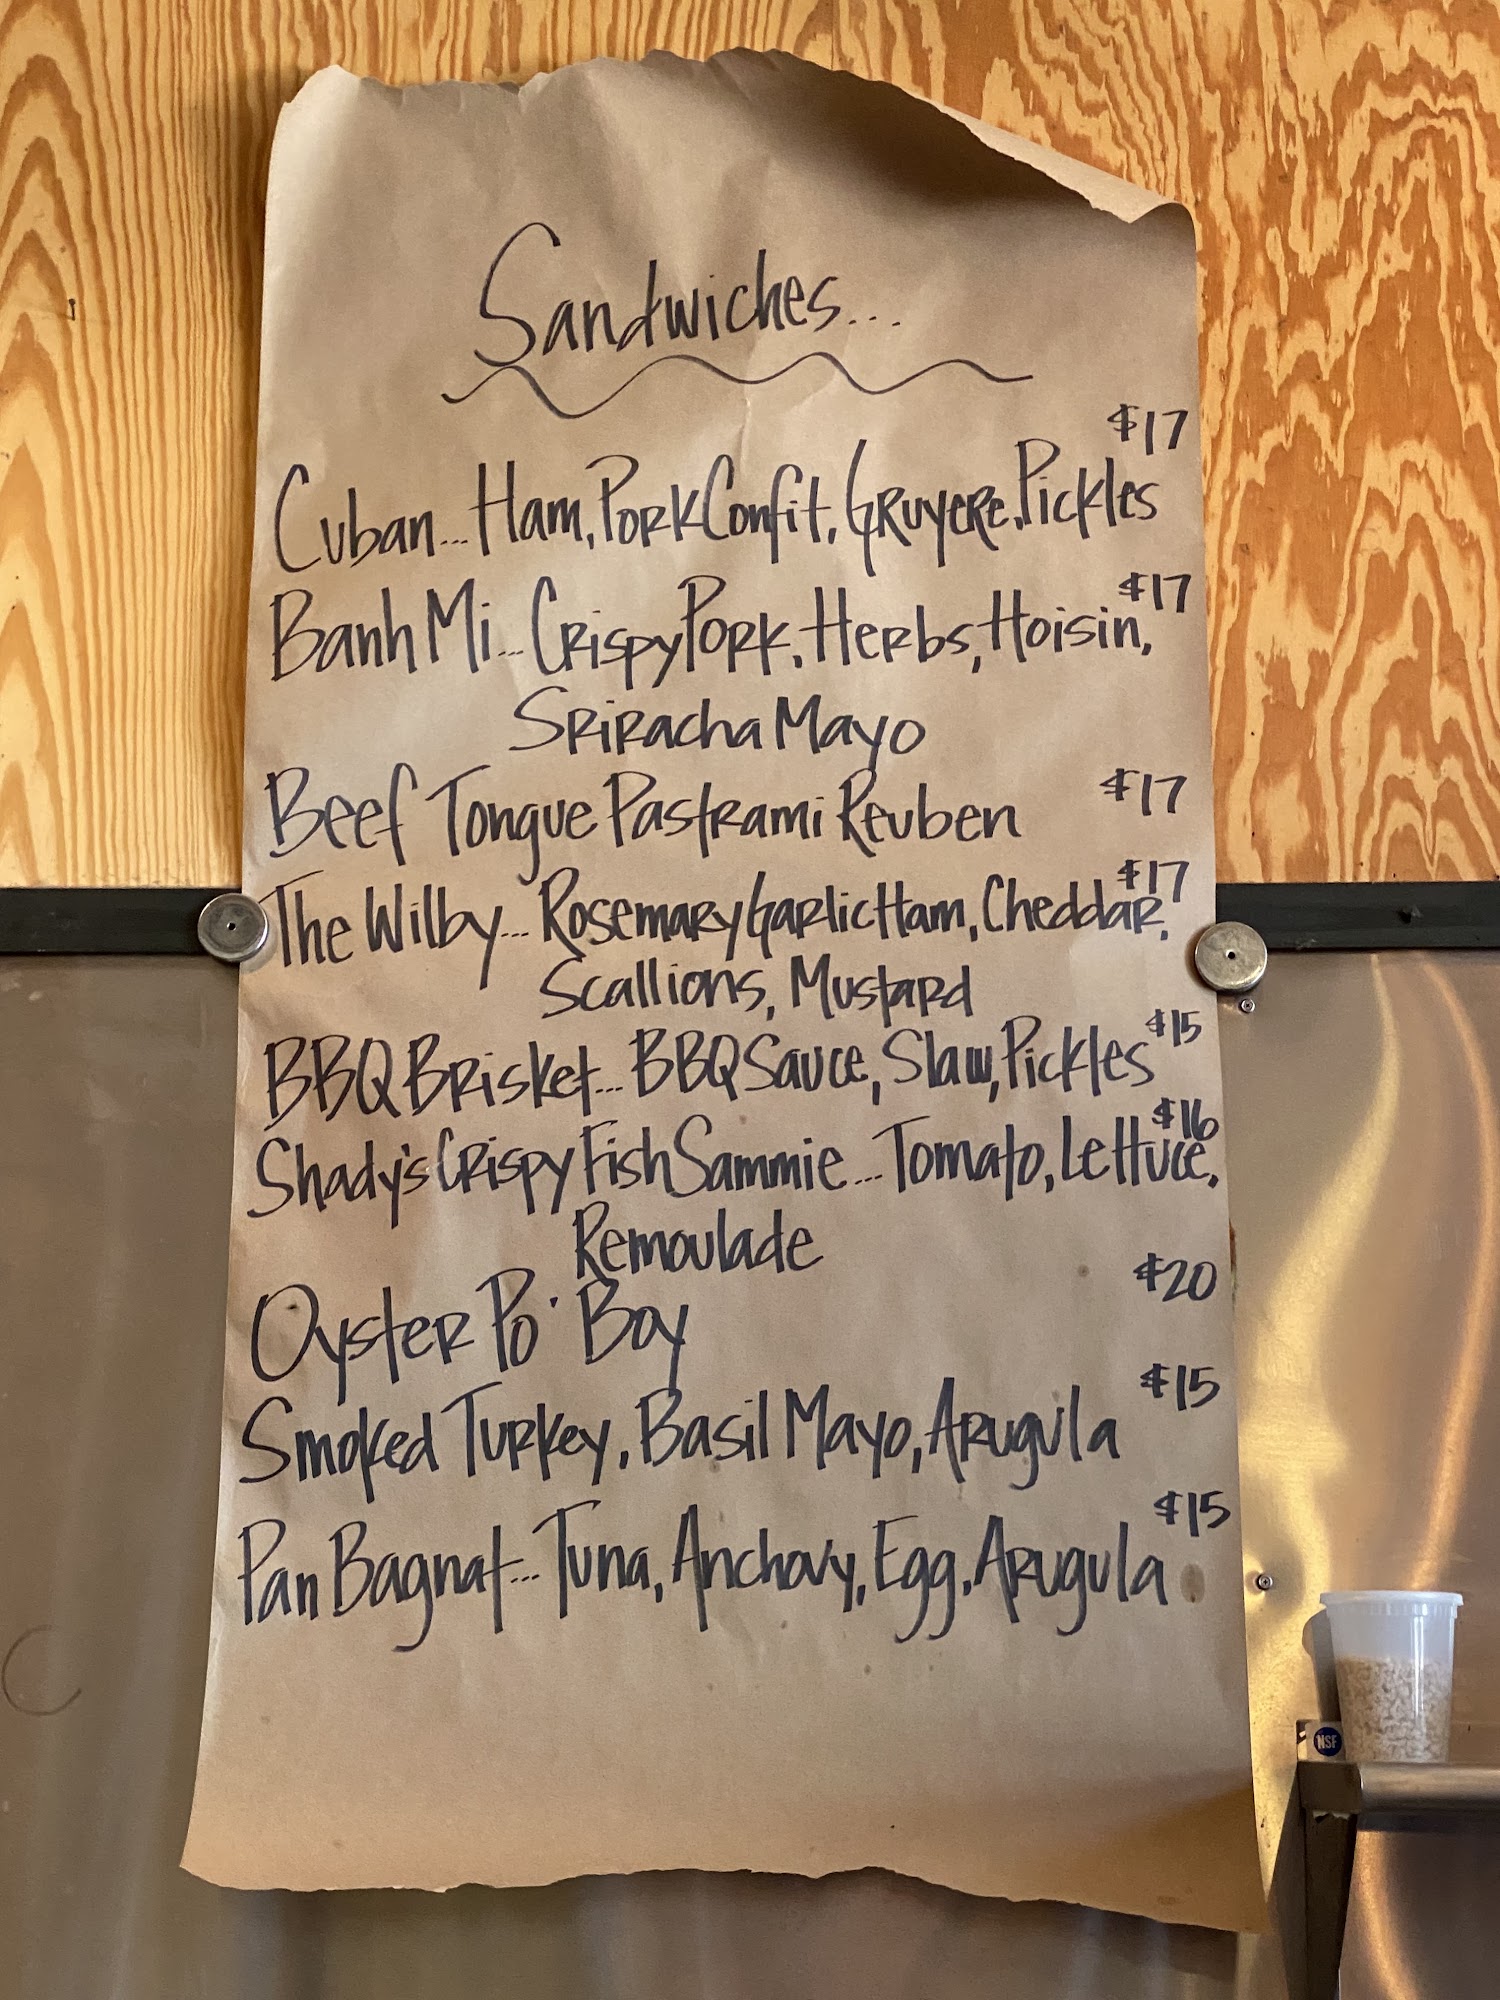 Sandwiches...
$17
Cuban... Ham, Pork Confit, Gruyere, Pickles
$17
Banh Mi... Crispy Pork, Herbs, Hoisin,
Sriracha Mayo
Beef Tongue Pastrami Reuben $17
$17
The Wilby... Rosemary Garlic Ham, Cheddar,
Scallions, Mustard
BBQ Brisket... BBQ Sauce, Slaw, Pickles $15
$16
Shady's Crispy Fish Sammie... Tomato, Lettuce,
Remoulade
Oyster Po' Boy $20
Smoked Turkey, Basil Mayo, Arugula $15
Pan Bagnat... Tuna, Anchovy, Egg, Arugula $15
NSF